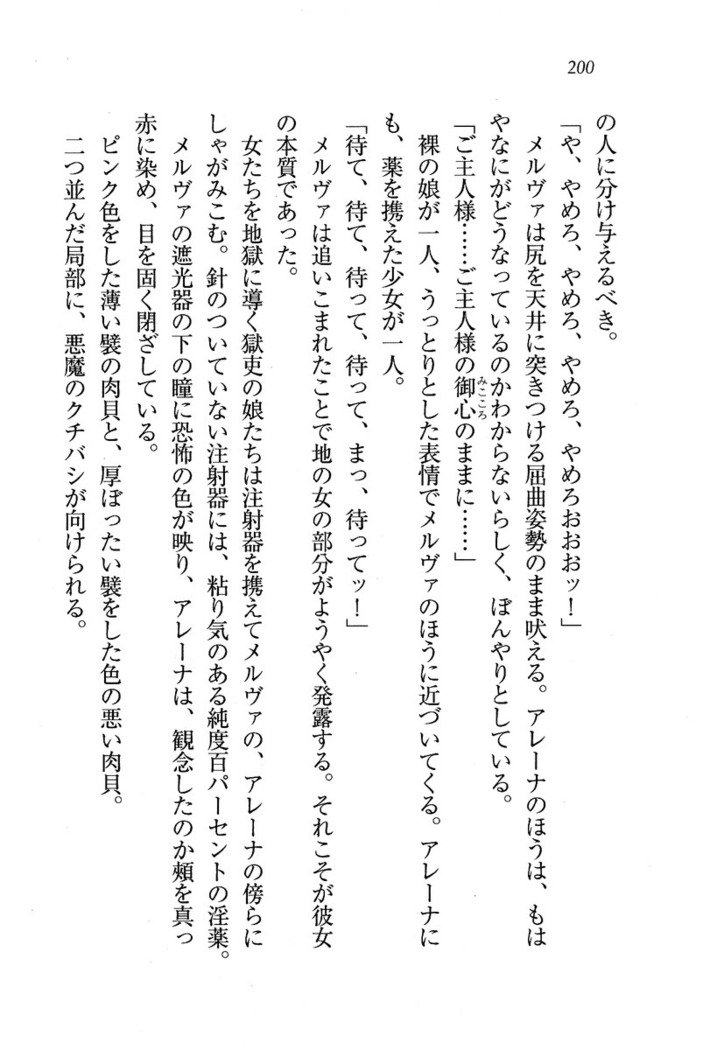 200
の人に分け与えるべき。
「や、やめろ、やめろ、やめろ、やめろおおおッ！」
メルヴァは尻を天井に突きつける屈曲姿勢のまま吠える。アレーナのほうは、もは
やなにがどうなっているのかわからないらしく、ぼんやりとしている。
「ご主人様……ご主人様の御心みこころのままに……」
裸の娘が一人、うっとりとした表情でメルヴァのほうに近づいてくる。アレーナに
も、薬を携えた少女が一人。
「待て、待て、待って、待って、まっ、待ってッ！」
メルヴァは追いこまれたことで地の女の部分がようやく発露する。それこそが彼女
の本質であった。
女たちを地獄に導く獄吏の娘たちは注射器を携えてメルヴァの、アレーナの傍らに
しゃがみこむ。針のついていない注射器には、粘り気のある純度百パーセントの淫薬。
メルヴァの遮光器の下の瞳に恐怖の色が映り、アレーナは、観念したのか頰を真っ
赤に染め、目を固く閉ざしている。
ピンク色をした薄い襞の肉貝と、厚ぼったい襞をした色の悪い肉貝。
二つ並んだ局部に、悪魔のクチバシが向けられる。